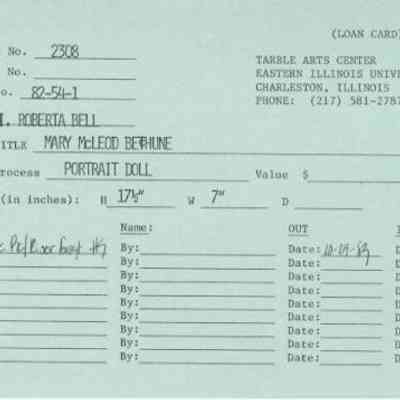 (LOAN CARD)
No. 2308
TARBLE ARTS CENTER
No.
EASTERN ILLINOIS UNIVE
o. 82-54-1
CHARLESTON, ILLINOIS
PHONE: (217) 581-2787
T. ROBERTA BELL
TITLE MARY McLEOD BETHUNE
rocess PORTRAIT DOLL Value $
(in inches): H 17½" W 7" D
Name: OUT
By: Date: 10-09-83 D
By: Date: D
By: Date: D
By: Date: D
By: Date: D
By: Date: D
By: Date: D
By: Date: D
By: Date: D